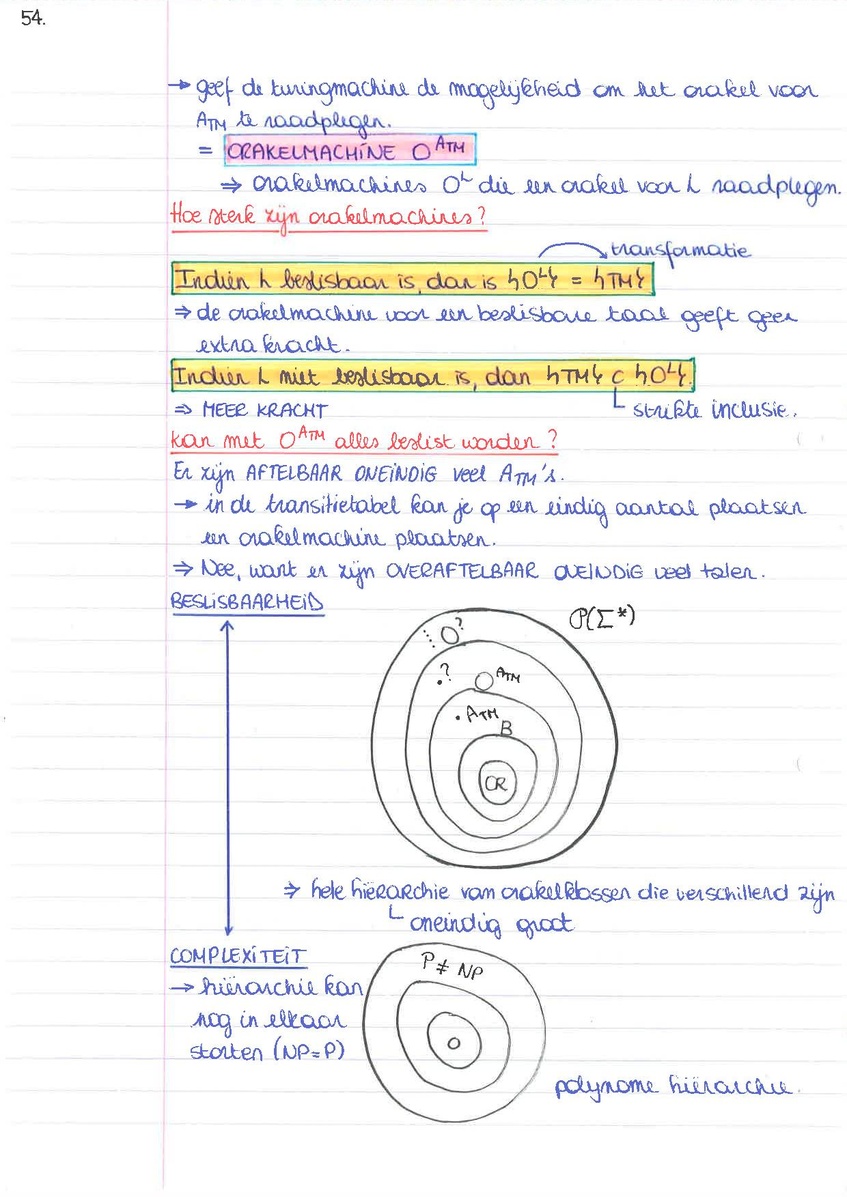 54.
→ geef de turingmachine de mogelijkheid om het orakel voor
ATM te raadplegen.
= ORAKELMACHINE O^ATM
⇒ orakelmachines O^L die een orakel voor L raadplegen.
Hoe sterk zijn orakelmachines?
transformatie
Indien L beslisbaar is, dan is {O^L} = {TM}
⇒ de orakelmachine voor een beslisbare taal geeft geen
extra kracht.
Indien L niet beslisbaar is, dan {TM} ⊂ {O^L}.
⇒ MEER KRACHT
strikte inclusie.
kan met O^ATM alles beslist worden?
Er zijn AFTELBAAR ONEINDIG veel ATM's.
→ in de transitietabel kan je op een eindig aantal plaatsen
een orakelmachine plaatsen.
⇒ Nee, want er zijn OVERAFTELBAAR ONEINDIG veel talen.
BESLISBAARHEID
P(Σ*)
O?
.?
O^ATM
. ATM
B
CR
⇒ hele hiërarchie van orakelklassen die verschillend zijn
oneindig groot
COMPLEXITEIT
P ≠ NP
→ hiërarchie kan
nog in elkaar
storten (NP=P)
polynome hiërarchie.